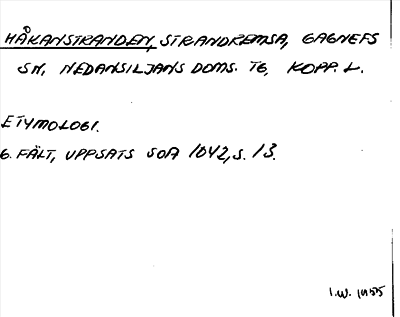 HÅKANSTRANDEN, STRANDREMSA, GAGNEFS
SN, NEDANSILJANS DOMS. TG, KOPP. L.
ETYMOLOGI.
G. FÄLT, UPPSATS SOA 1042, S. 13.
I.W. 1955